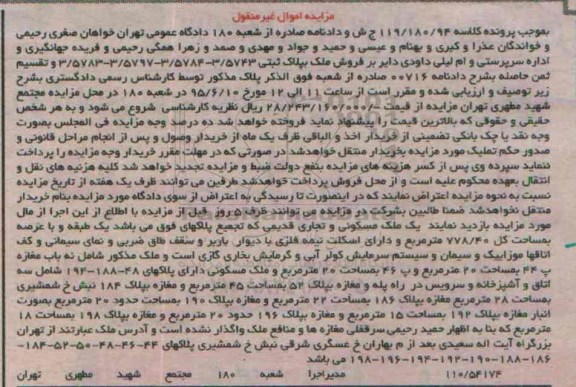 مزایده اموال غیرمنقول
بموجب پرونده کلاسه ۱۱۹/۱۸۰/۹۴ ج ش و دادنامه صادره از شعبه ۱۸۰ دادگاه عمومی تهران خواهان صغری رحیمی
و خواندگان عذرا و کبری و بهنام و عیسی و حمید و جواد و مهدی و صمد و زهرا همگی رحیمی و فریده جهانگیری و
اداره سرپرستی و ام لیلی داودی دایر بر فروش ملک پلاک ثبتی ۳/۵۷۴۳-۳/۵۷۸۴-۳/۵۷۹۷-۳/۵۷۸۳ و تقسیم
ثمن حاصله بشرح دادنامه ۰۰۷۱۶ صادره از شعبه فوق الذکر پلاک مذکور توسط کارشناس رسمی دادگستری بشرح
زیر توصیف و ارزیابی شده و مقرر است از ساعت ۱۱ الی ۱۲ مورخ ۹۵/۶/۱۰ در شعبه ۱۸۰ در محل مزایده مجتمع
شهید مطهری تهران مزایده از قیمت ۲۸/۲۴۳/۱۶۰/۰۰۰ ریال نظریه کارشناسی شروع می شود و به هر شخص
حقیقی و حقوقی که بالاترین قیمت را پیشنهاد نماید فروخته خواهد شد ده درصد وجه مزایده فی المجلس بصورت
وجه نقد یا چک بانکی تضمینی از خریدار اخذ و الباقی ظرف یک ماه از خریدار وصول و پس از انجام مراحل قانونی و
صدور حکم تملیک مورد مزایده بخریدار منتقل خواهدشد در صورتی که در مهلت مقرر خریدار وجه مزایده را پرداخت
ننماید سپرده وی پس از کسر هزینه های مزایده بنفع دولت ضبط و مزایده تجدید خواهد شد کلیه هزینه های نقل و
انتقال بعهده محکوم علیه است و از محل فروش پرداخت خواهدشد طرفین می توانند ظرف یک هفته از تاریخ مزایده
نسبت به نحوه مزایده اعتراض نمایند که در اینصورت تا رسیدگی به اعتراض از سوی دادگاه مورد مزایده بنام خریدار
منتقل نخواهدشد ضمنا طالبین بشرکت در مزایده می توانند ظرف ۵ روز قبل از مزایده با اطلاع از این اجرا از مال
مورد مزایده بازدید نمایند یک ملک مسکونی و تجاری قدیمی که تجمیع پلاکهای فوق می باشد یک طبقه و با عرصه
بمساحت کل ۷۷۸/۴۰ مترمربع و دارای اسکلت نیمه فلزی با دیوار باربر و سقف طاق ضربی و نمای سیمانی و کف
اتاقها موزاییک و سیمان و سیستم سرمایش کولر آبی و گرمایش بخاری گازی است و ملک مذکور شامل نه باب مغازه
پ ۴۴ بمساحت ۲۰ مترمربع و پ ۴۶ بمساحت ۲۰ مترمربع و ملک مسکونی دارای پلاکهای ۴۸-۱۸۸-۱۹۴ شامل سه
اتاق و آشپزخانه و سرویس در راه پله و مغازه پلاک ۵۲ بمساحت ۴۵ مترمربع و مغازه پلاک ۱۸۴ نبش خ شمشیری
بمساحت ۲۸ مترمربع مغازه پلاک ۱۸۶ بمساحت ۲۲ مترمربع و مغازه پلاک ۱۹۰ بمساحت حدود ۲۰ مترمربع بصورت
انبار مغازه پلاک ۱۹۲ بمساحت ۱۵ مترمربع و مغازه پلاک ۱۹۶ حدود ۲۰ مترمربع و مغازه پلاک ۱۹۸ بمساحت ۱۸
مترمربع که بنا به اظهار حمید رحیمی سرقفلی مغازه ها و منافع ملک واگذار نشده است و آدرس ملک عبارتند از تهران
بزرگراه آیت اله سعیدی بعد از م بهاران خ عسگری شرقی نبش خ شمشیری پلاکهای ۴۴-۴۶-۴۸-۵۰-۵۲-۱۸۴-
۱۸۶-۱۸۸-۱۹۰-۱۹۲-۱۹۴-۱۹۶-۱۹۸ می باشد
۱۱۰/۵۴۱۷۴ مدیراجرا شعبه ۱۸۰ مجتمع شهید مطهری تهران